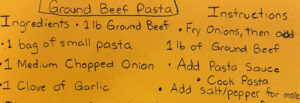 Ground Beef Pasta
Ingredients
• 1 lb Ground Beef
• 1 bag of small pasta
• 1 Medium Chopped Onion
• 1 Clove of Garlic
Instructions
• Fry Onions, then add
1 lb of Ground Beef
• Add Pasta Sauce
• Cook Pasta
• Add salt/pepper for more